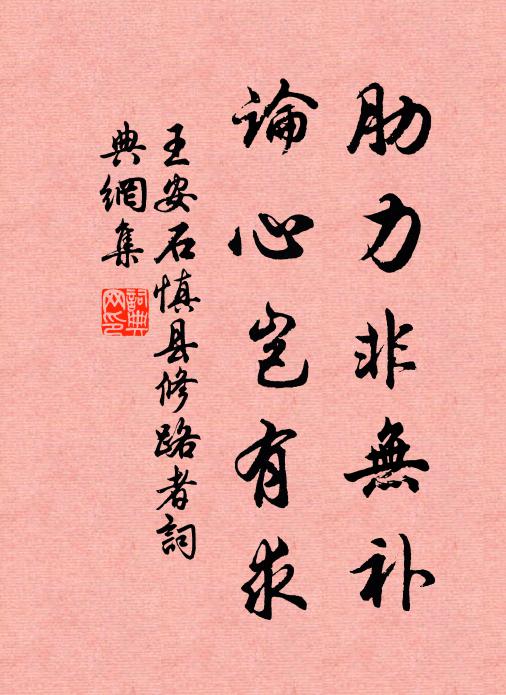 肋力非無补
論心岂有求
王安石慎县修路者詞
典網集
詞典网印